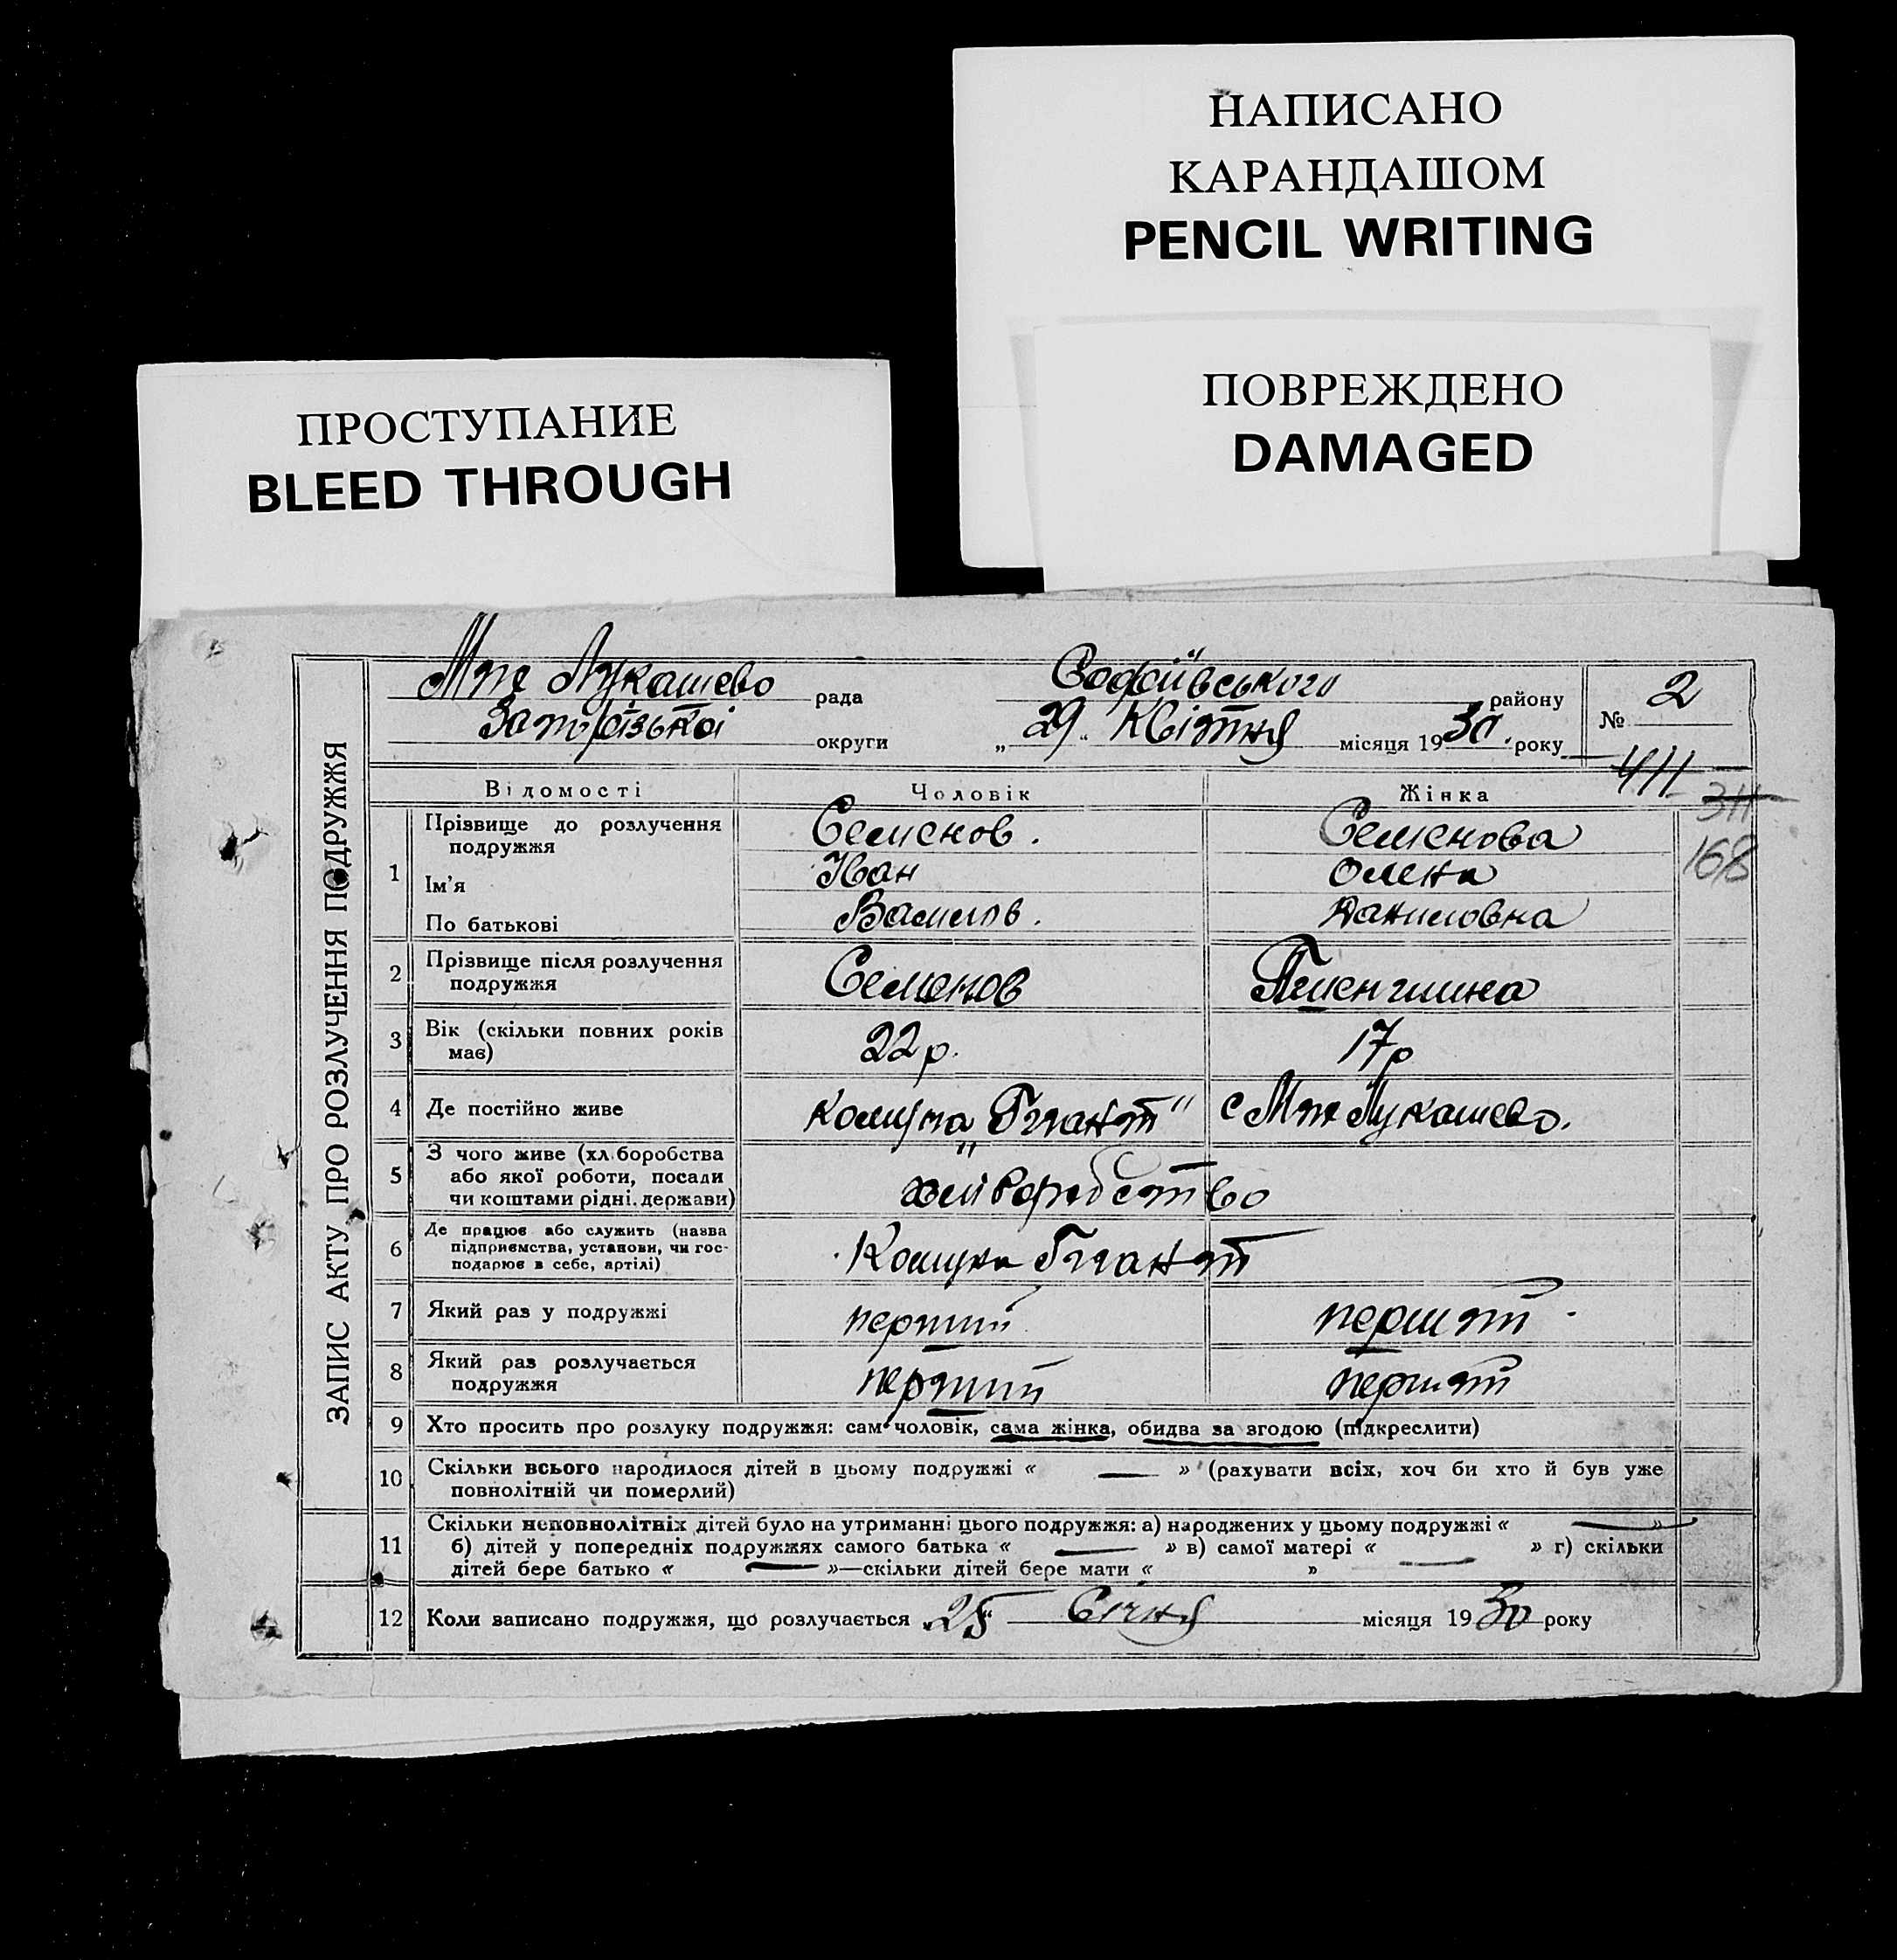 НАПИСАНО
КАРАНДАШОМ
PENCIL WRITING
ПОВРЕЖДЕНО
DAMAGED
ПРОСТУПАНИЕ
BLEED THROUGH
ЗАПИС АКТУ ПРО РОЗЛУЧЕННЯ ПОДРУЖЖЯ
Лукашево рада Софіївського району № 2
Запорізької округи „29“ Квітня місяця 1930. року
411
311
168
Відомості Чоловік Жінка
1 Прізвище до розлучення подружжя Семенов. Семенова
Ім'я Іван Олена
По батькові Васильов. Даниловна
2 Прізвище після розлучення Семенов
подружжя
3 Вік (скільки повних років 22 р. 17 р
має)
4 Де постійно живе комуна „Гігант" с Лукашево.
5 З чого живе (хл.боробства
або якої роботи, посади
чи коштами рідні.держави)
6 Де працює або служить (назва Комуна Гігант
підприємства, установи, чи гос-
подарює в себе, артілі)
7 Який раз у подружжі перший перший
8 Який раз розлучається перший перший
подружжя
9 Хто просить про розлуку подружжя: сам чоловік, сама жінка, обидва за згодою (підкреслити)
10 Скільки всього народилося дітей в цьому подружжі « — » (рахувати всіх, хоч би хто й був уже
повнолітній чи померлий)
11 Скільки неповнолітніх дітей було на утриманні цього подружжя: а) народжених у цьому подружжі « — »
б) дітей у попередніх подружжях самого батька « — » в) самої матері « — » г) скільки
дітей бере батько « — »—скільки дітей бере мати « »
12 Коли записано подружжя, що розлучається 25 Січня місяця 1930 року